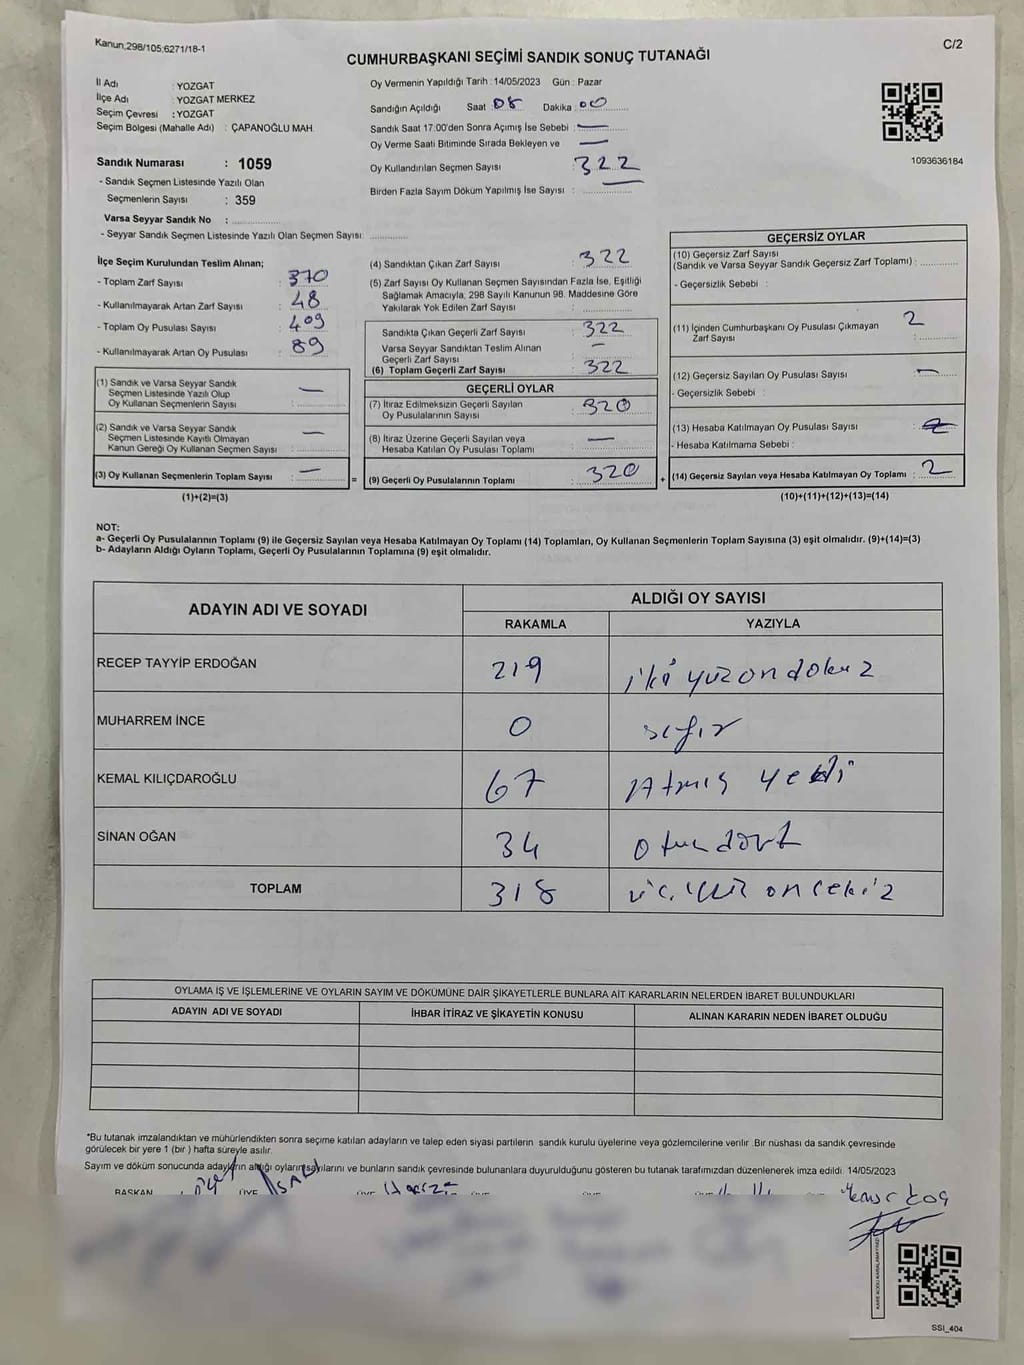 Kanun,298/105,6271/18-1
C/2
CUMHURBAŞKANI SEÇİMİ SANDIK SONUÇ TUTANAĞI
İl Adı : YOZGAT
İlçe Adı : YOZGAT MERKEZ
Seçim Çevresi : YOZGAT
Seçim Bölgesi (Mahalle Adı) : ÇAPANOĞLU MAH.
Sandık Numarası : 1059
- Sandık Seçmen Listesinde Yazılı Olan
Seçmenlerin Sayısı : 359
Varsa Seyyar Sandık No :
- Seyyar Sandık Seçmen Listesinde Yazılı Olan Seçmen Sayısı:
Oy Vermenin Yapıldığı Tarih : 14/05/2023 Gün : Pazar
Sandığın Açıldığı Saat : 08 Dakika : 00
Sandık Saat 17:00'den Sonra Açımış İse Sebebi : —
Oy Verme Saati Bitiminde Sırada Bekleyen ve —
Oy Kullandırılan Seçmen Sayısı : 322
Birden Fazla Sayım Döküm Yapılmış İse Sayısı :
1093636184
İlçe Seçim Kurulundan Teslim Alınan;
- Toplam Zarf Sayısı : 370
- Kullanılmayarak Artan Zarf Sayısı : 48
- Toplam Oy Pusulası Sayısı : 409
- Kullanılmayarak Artan Oy Pusulası : 89
(1) Sandık ve Varsa Seyyar Sandık
Seçmen Listesinde Yazılı Olup
Oy Kullanan Seçmenlerin Sayısı : —
(2) Sandık ve Varsa Seyyar Sandık
Seçmen Listesinde Kayıtlı Olmayan
Kanun Gereği Oy Kullanan Seçmen Sayısı : —
(3) Oy Kullanan Seçmenlerin Toplam Sayısı : —
(1)+(2)=(3)
=
(4) Sandıktan Çıkan Zarf Sayısı : 322
(5) Zarf Sayısı Oy Kullanan Seçmen Sayısından Fazla İse, Eşitliği
Sağlamak Amacıyla, 298 Sayılı Kanunun 98. Maddesine Göre
Yakılarak Yok Edilen Zarf Sayısı :
Sandıkta Çıkan Geçerli Zarf Sayısı : 322
Varsa Seyyar Sandıktan Teslim Alınan
Geçerli Zarf Sayısı : —
(6) Toplam Geçerli Zarf Sayısı : 322
GEÇERLİ OYLAR
(7) İtiraz Edilmeksizin Geçerli Sayılan
Oy Pusulalarının Sayısı : 320
(8) İtiraz Üzerine Geçerli Sayılan veya
Hesaba Katılan Oy Pusulası Toplamı : —
(9) Geçerli Oy Pusulalarının Toplamı : 320
+
GEÇERSİZ OYLAR
(10) Geçersiz Zarf Sayısı
(Sandık ve Varsa Seyyar Sandık Geçersiz Zarf Toplamı) :
- Geçersizlik Sebebi :
(11) İçinden Cumhurbaşkanı Oy Pusulası Çıkmayan
Zarf Sayısı : 2
(12) Geçersiz Sayılan Oy Pusulası Sayısı : —
- Geçersizlik Sebebi :
(13) Hesaba Katılmayan Oy Pusulası Sayısı :
- Hesaba Katılmama Sebebi :
(14) Geçersiz Sayılan veya Hesaba Katılmayan Oy Toplamı : 2
(10)+(11)+(12)+(13)=(14)
NOT:
a- Geçerli Oy Pusulalarının Toplamı (9) ile Geçersiz Sayılan veya Hesaba Katılmayan Oy Toplamı (14) Toplamları, Oy Kullanan Seçmenlerin Toplam Sayısına (3) eşit olmalıdır. (9)+(14)=(3)
b- Adayların Aldığı Oyların Toplamı, Geçerli Oy Pusulalarının Toplamına (9) eşit olmalıdır.
ADAYIN ADI VE SOYADI
ALDIĞI OY SAYISI
RAKAMLA YAZIYLA
RECEP TAYYİP ERDOĞAN 219 iki yüz on dokuz
MUHARREM İNCE 0 sıfır
KEMAL KILIÇDAROĞLU 67 Atmış yedi
SİNAN OĞAN 34 otuz dört
TOPLAM 318 üç yüz on sekiz
OYLAMA İŞ VE İŞLEMLERİNE VE OYLARIN SAYIM VE DÖKÜMÜNE DAİR ŞİKAYETLERLE BUNLARA AİT KARARLARIN NELERDEN İBARET BULUNDUKLARI
ADAYIN ADI VE SOYADI İHBAR İTİRAZ VE ŞİKAYETİN KONUSU ALINAN KARARIN NEDEN İBARET OLDUĞU
*Bu tutanak imzalandıktan ve mühürlendikten sonra seçime katılan adayların ve talep eden siyasi partilerin sandık kurulu üyelerine veya gözlemcilerine verilir .Bir nüshası da sandık çevresinde
görülecek bir yere 1 (bir ) hafta süreyle asılır.
Sayım ve döküm sonucunda adayların aldığı oyların sayılarını ve bunların sandık çevresinde bulunanlara duyurulduğunu gösteren bu tutanak tarafımızdan düzenlenerek imza edildi. 14/05/2023
BAŞKAN ÜYE
SSI_404